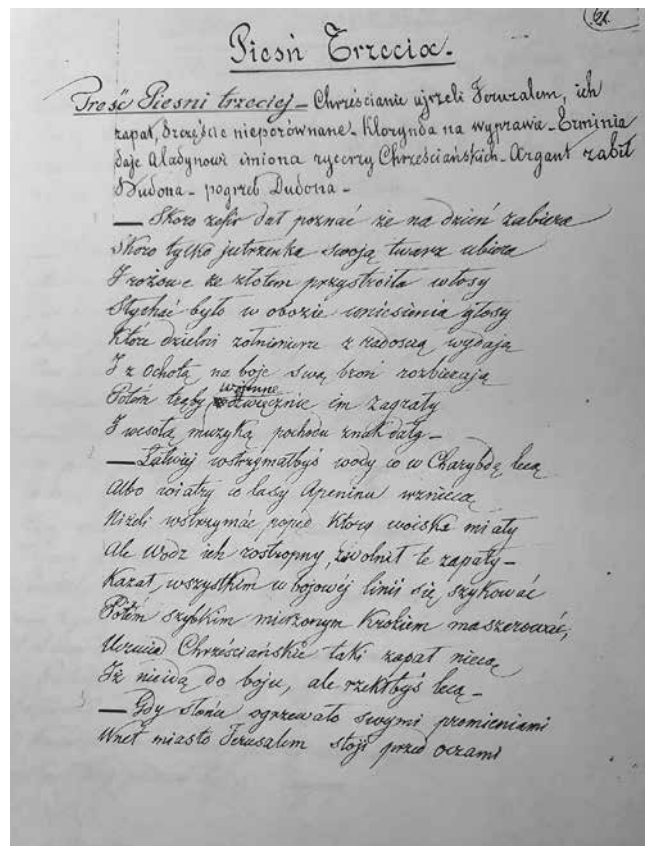 61.
Pieśń Trzecia.
Treść Pieśni trzeciej – Chrześcianie ujrzeli Jeruzalem, ich
zapał, szczęście nieporównane – Klorynda na wyprawie – Erminia
daje Aladynowi imiona rycerzy Chrześciańskich – Argant zabił
Dudona – pogrzeb Dudona –
— Skoro zefir dał poznać że na dzień zabiera
Skoro tylko jutrzenka swoją twarz ubiera
I różowe ze złotem przystroiła włosy
Słychać było w obozie uniesienia głosy
Które dzielni żołnierze z radością wydają
I z ochotą na boje swą broń rozbierają
Potém trąby wojenne dźwięcznie im zagrały
I wesołą muzyką pochodu znak dały –
— Łatwiej wstrzymałbyś wody co w Charybdę lecą
Albo wiatry co lasy Apeninu wzniecą
Niżeli wstrzymać popęd który wojska miały
Ale wódz ich roztropny, zwolnił te zapały –
Kazał wszystkim w bojowéj linii się szykować
Potém szybkim mierzonym krokiem maszerować,
Chrześciańskie taki zapał niecą
Iż nie idą do boju, ale rzekłbyś lecą –
— Gdy słońce ogrzewało swymi promieniami
Wnet miasto Jerusalem stoji przed oczami